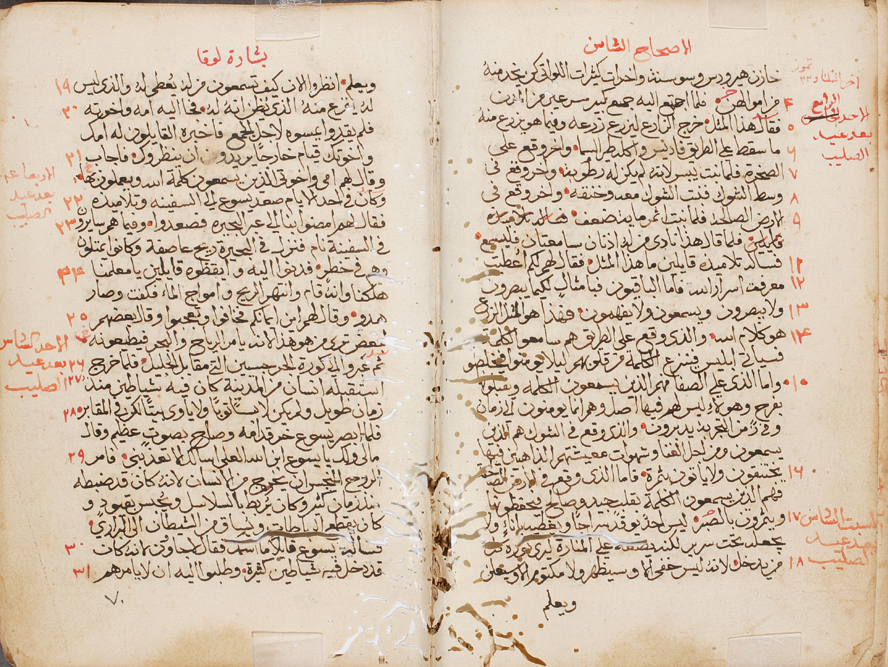 الاصحاح الثامن
خازن هيرودس وسوسنة واخرات كثيرات اللواتي كن يخدمنه
من اموالهن فلما اجتمع اليه جمع كبير
فقال هذا المثل خرج الزارع ليزرع زرعه وفيما هو يزرع منه
ما سقط على الطريق فاديس واكله طير السما واخر وقع على
الصخره فلما نبت يبس لانه لم يكن له رطوبه واخر وقع في
وسط الشوك فنبت الشوك معه وخنقه واخر وقع في
الارض الصالحه فلما نبت اثمر ماية ضعف
فلما قال هذا نادى من له اذنان سامعتان فليسمع
فساله تلاميذه قايلين ما هذا المثل فقال لهم لكم اعطيت
معرفة اسرار الله فاما الباقيون فبامثال لكيما يبصرون
ولا يبصرون ويسمعون ولا يفهمون فهذا هو المثل الزرع
هو كلام الله والذي وقع على الطريق هم سامعوا الكلمة
فياتي ابليس فينزع الكلمة من قلوبهم ليلا يومنوا فيخلصوا
واما الذي على الصفا فهم الذين يسمعون الكلمة ويقبلوها
بفرح وهولاء ليس لهم فيها اصل وهم انما يومنون الى زمان
وفي زمن التجربة يدبرون والذي وقع في الشوك هم الذين
يسمعون ومن اجل الغنا وشهوات معيشتهم الذاهبين فيها
يختنقون ولا ياتون بثمرة فاما الذي وقع في الارض الصالحة
فهم الذين يسمعون الكلمة بقلب جيد وصالح ويحفظوها
ويثمرون بالصبر ليس احد يوقد سراجا ويغطيه باناء ولا
يجعله تحت سرير لكنه يضعه على المنارة ليرى نوره كل
من يدخل لانه ليس خفي الا وسيظهر ولا مكتوم الا ويعلن
ويعلم
الرابع
بعد عيد
الصليب
السبت السادس
بعد عيد
الصليب
٤
٥
٦
٧
٨
٩
١٢
١٣
١٤
١٥
١٦
١٧
١٨
بشارة لوقا
ويعلم انظروا الان كيف تسمعون من له يعطى له والذي ليس
له ينزع منه الذي يظن انه له فجا اليه امه واخوته
فلم يقدروا يمسوه لاجل الجمع فاخبره القايلون له امك
واخوتك قيام خارجا يريدون ان ينظروك فاجاب
وقال لهم امي واخوتي الذين يسمعون كلمة الله ويعملون بها
وكان في احد الايام صعد يسوع الى السفينه وتلاميذه
فقال لهم امضوا بنا الى عبر البحيره فصعدوا وفيما هم سايرون
في السفينة نام فنزل في البحيرة ريح عاصفة وكانوا يمتلون
وهم في خطر فدنوا اليه وايقظوه قايلين يا معلمنا
هلكنا وانه قام وانتهر الريح وامواج الماء فكفت وصار
هدو وقال لهم اين ايمانكم فخافوا وتعجبوا وقال بعضهم
لبعض ترى من هو هذا لانه يامر الرياح والبحر فيطيعونه
ثم عبروا الى كورة الجرجسيين التي مقابل الجليل فلما خرج
استقبله انسان من المدينة كان فيه شياطين منذ
زمان طويل ولم يكن لابسا ثوبا ولا ياوي بيتا لكن في المقابر
فلما ابصر يسوع خر قدامه وصاح بصوت عظيم وقال
مالي ولك يا يسوع ابن الله العلي اسالك لا تعذبني فامر
الروح النجس ان يخرج من الانسان لانه كان قد ضبطه
منذ زمان كثير وكان يربط بالسلاسل ويحبس بقيود و
كان يقطع الرباطات ويساق من الشيطان الى البراري
فساله يسوع قايلا ما اسمك فقال لجاون لانه كان
قد دخل فيه شياطين كثيرة وطلبوا اليه ان لا يامرهم
١٩
٢٠
٢١
٢٢
٢٣
٢٤
٢٥
٢٦
٢٧
٢٨
٢٩
٣٠
٣١
الاربعا
بعد عيد
الصليب
الاحد السادس
بعد عيد
الصليب
٧٠